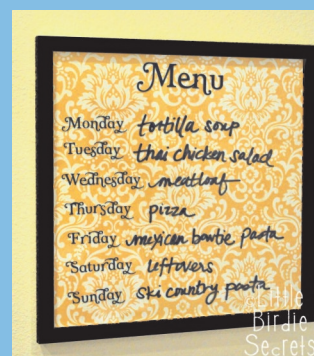 Menu
Monday tortilla soup
Tuesday thai chicken salad
Wednesday meatloaf
Thursday pizza
Friday mexican bowtie pasta
Saturday leftovers
Sunday ski country pasta
Little
Birdie
Secrets